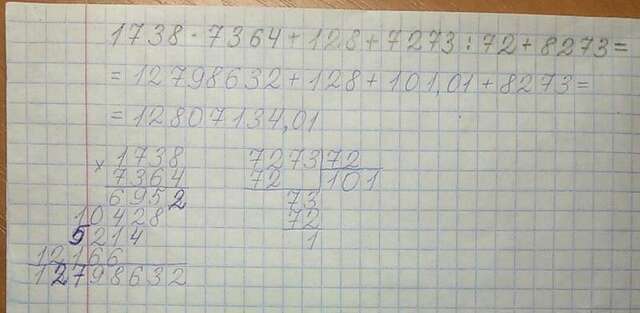 1738 · 7364 + 128 + 7273 : 72 + 8273 =
= 12798632 + 128 + 101,01 + 8273 =
= 12807134,01
× 1738
7364
6952
10428
5214
12166
12798632
7273 | 72
72 | 101
73
72
1